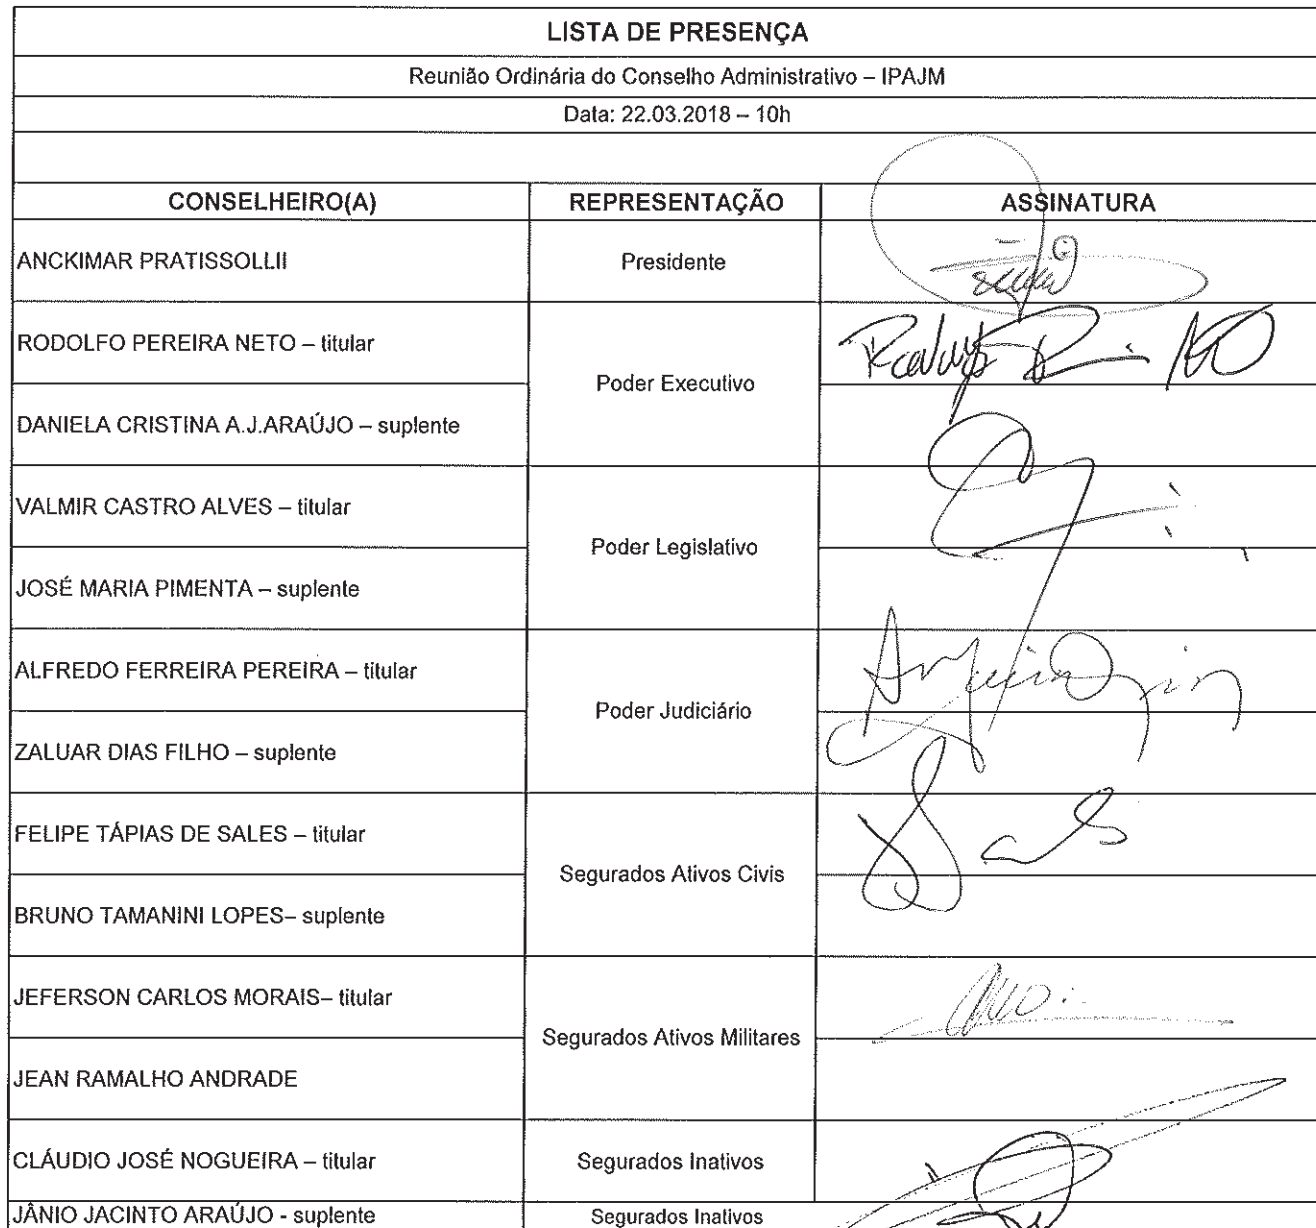 LISTA DE PRESENÇA
Reunião Ordinária do Conselho Administrativo – IPAJM
Data: 22.03.2018 – 10h
CONSELHEIRO(A) REPRESENTAÇÃO ASSINATURA
ANCKIMAR PRATISSOLLII Presidente
RODOLFO PEREIRA NETO – titular
Poder Executivo
DANIELA CRISTINA A.J.ARAÚJO – suplente
VALMIR CASTRO ALVES – titular
Poder Legislativo
JOSÉ MARIA PIMENTA – suplente
ALFREDO FERREIRA PEREIRA – titular
Poder Judiciário
ZALUAR DIAS FILHO – suplente
FELIPE TÁPIAS DE SALES – titular
Segurados Ativos Civis
BRUNO TAMANINI LOPES– suplente
JEFERSON CARLOS MORAIS– titular
Segurados Ativos Militares
JEAN RAMALHO ANDRADE
CLÁUDIO JOSÉ NOGUEIRA – titular Segurados Inativos
JÂNIO JACINTO ARAÚJO - suplente Segurados Inativos